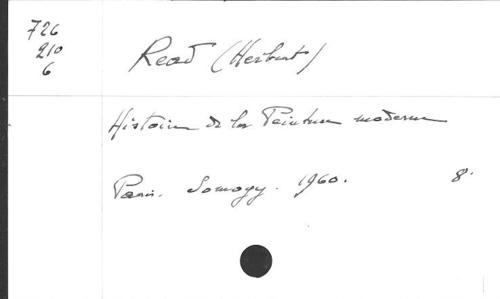 726
210
6
Read (Herbert)
Histoire de la Peinture moderne
Paris. Somogy. 1960. 8°